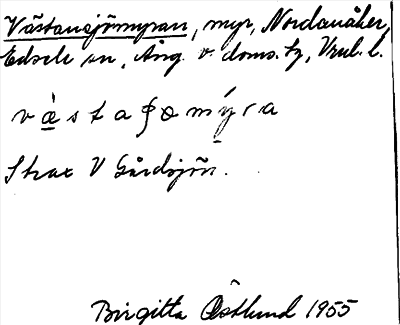 Västansjömyran, myr, Nordanåker,
Edsele sn, Ång. v. doms. tg, Vnrl. l.
v ä̀ s t a ʂ ø m ý r a
Strax V Gårdsjön.
Birgitta Östlund 1955